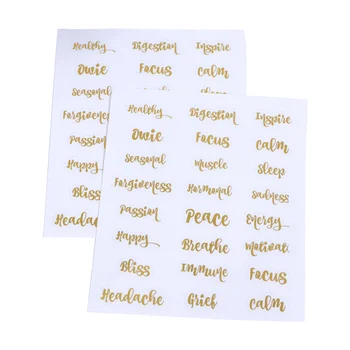 Healthy Digestion Inspire
Owie Focus Calm
Seasonal
Forgiveness
Passion
Happy
Bliss
Headache
Healthy Digestion Inspire
Owie Focus Calm
Seasonal Muscle Sleep
Forgiveness Hormonal Sadness
Passion Peace Energy
Happy Breathe Motivati
Bliss Immune Focus
Headache Grief Calm